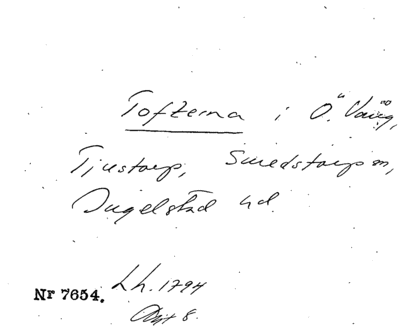 Tofterna i Ö. Vång,
Tjustorp, Smedstorp sn,
Ingelstad hd.
Lh. 1794
Nr 7654. Akt 8.